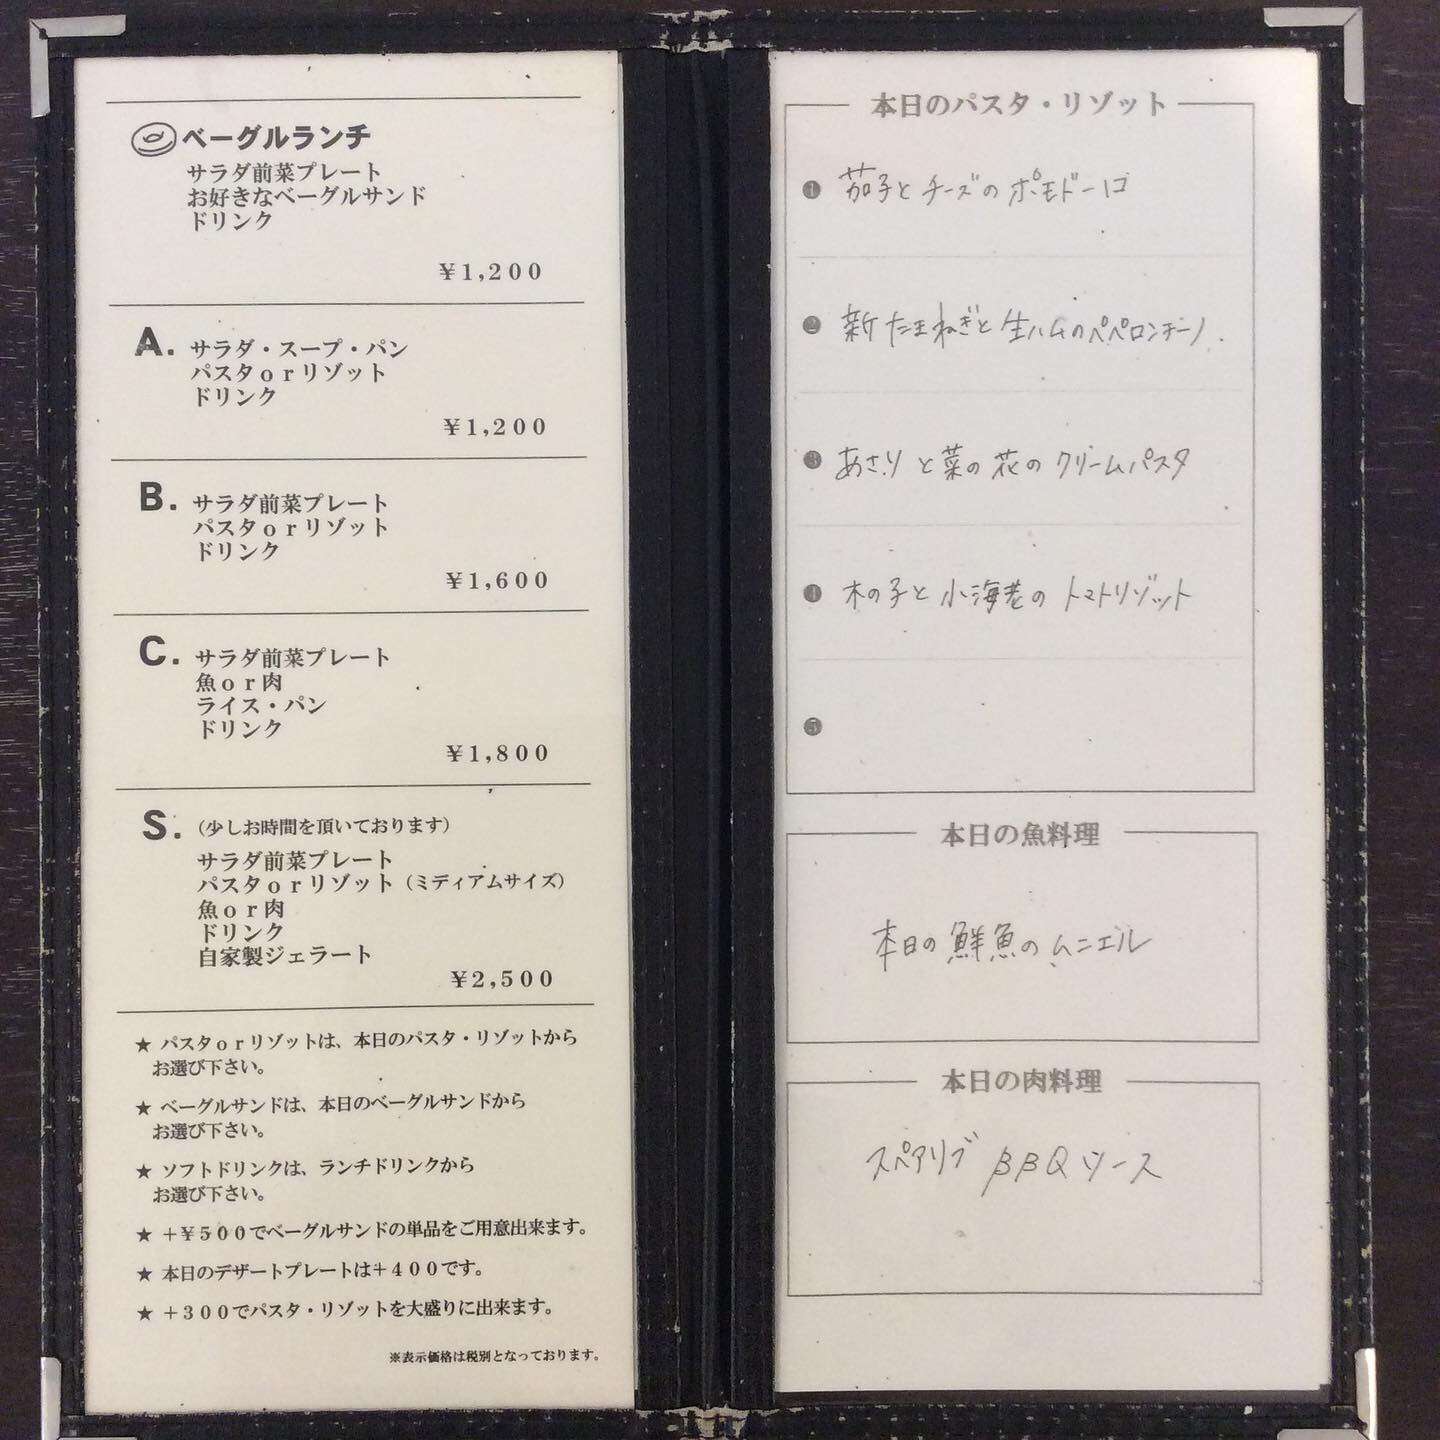 ベーグルランチ
サラダ前菜プレート
お好きなベーグルサンド
ドリンク
￥1,200
A. サラダ・スープ・パン
パスタorリゾット
ドリンク
￥1,200
B. サラダ前菜プレート
パスタorリゾット
ドリンク
￥1,600
C. サラダ前菜プレート
魚or肉
ライス・パン
ドリンク
￥1,800
S. （少しお時間を頂いております）
サラダ前菜プレート
パスタorリゾット（ミディアムサイズ）
魚or肉
ドリンク
自家製ジェラート
￥2,500
★ パスタorリゾットは、本日のパスタ・リゾットから
お選び下さい。
★ ベーグルサンドは、本日のベーグルサンドから
お選び下さい。
★ ソフトドリンクは、ランチドリンクから
お選び下さい。
★ +￥500でベーグルサンドの単品をご用意出来ます。
★ 本日のデザートプレートは+400です。
★ +300でパスタ・リゾットを大盛りに出来ます。
※表示価格は税別となっております。
本日のパスタ・リゾット
❶ 茄子とチーズのポモドーロ
❷ 新たまねぎと生ハムのペペロンチーノ
❸ あさりと菜の花のクリームパスタ
❹ 木の子と小海老のトマトリゾット
❺
本日の魚料理
本日の鮮魚のムニエル
本日の肉料理
スペアリブ BBQソース